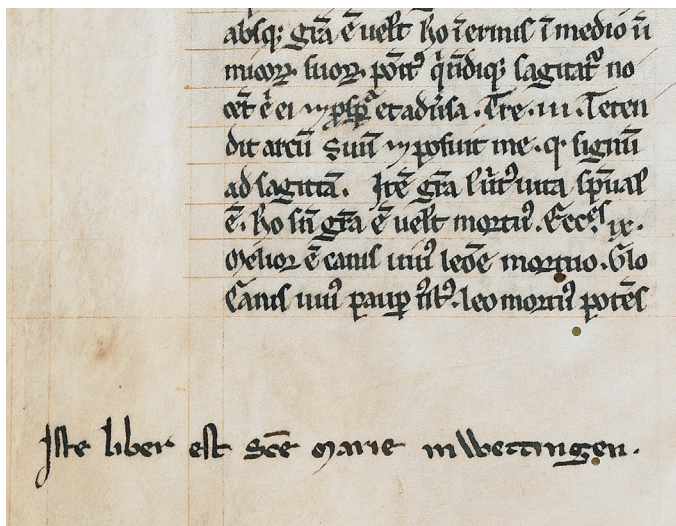 absq; gr̄a ē uelt̄ ho īermis ī medio īi
micoꝝ suoꝝ po͛itꝰ q̇ undiq; sagitat᷑ no
cet ē ei ꝓspꝑa et aduersa. Tre. iii. Teten
dit arcū suū ⁊ posuit me. q͛ signū
ad sagittā. Itē gr̄a uita sp̄ual̄
ē. ho sn̄ gr̄a ē uelt̄ mortuꝰ. Ecces ix.
Melior ē canis uiuꝰ leōe mortuo. Glo
Canis uiuꝰ pauꝑ leo mortuꝰ potēs
Iste liber est Sce Marie in Wettingen.